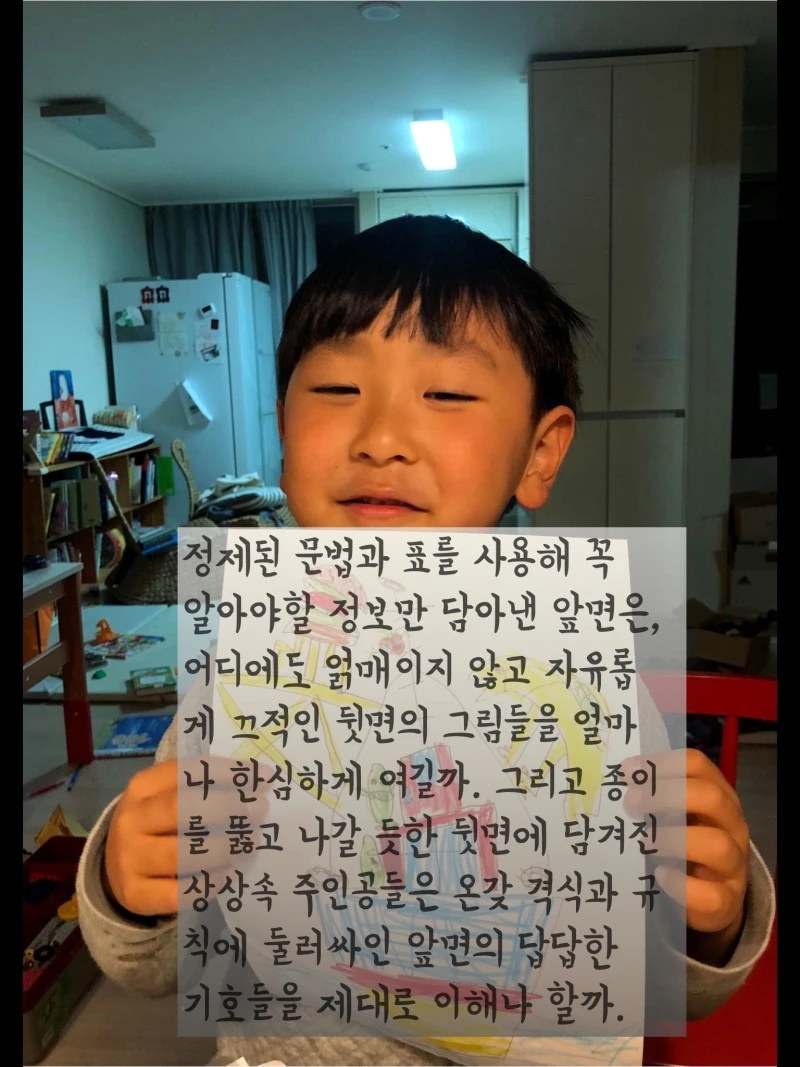 정제된 문법과 표를 사용해 꼭
알아야할 정보만 담아낸 앞면은,
어디에도 얽매이지 않고 자유롭
게 끄적인 뒷면의 그림들을 얼마
나 한심하게 여길까. 그리고 종이
를 뚫고 나갈 듯한 뒷면에 담겨진
상상속 주인공들은 온갖 격식과 규
칙에 둘러싸인 앞면의 답답한
기호들을 제대로 이해나 할까.